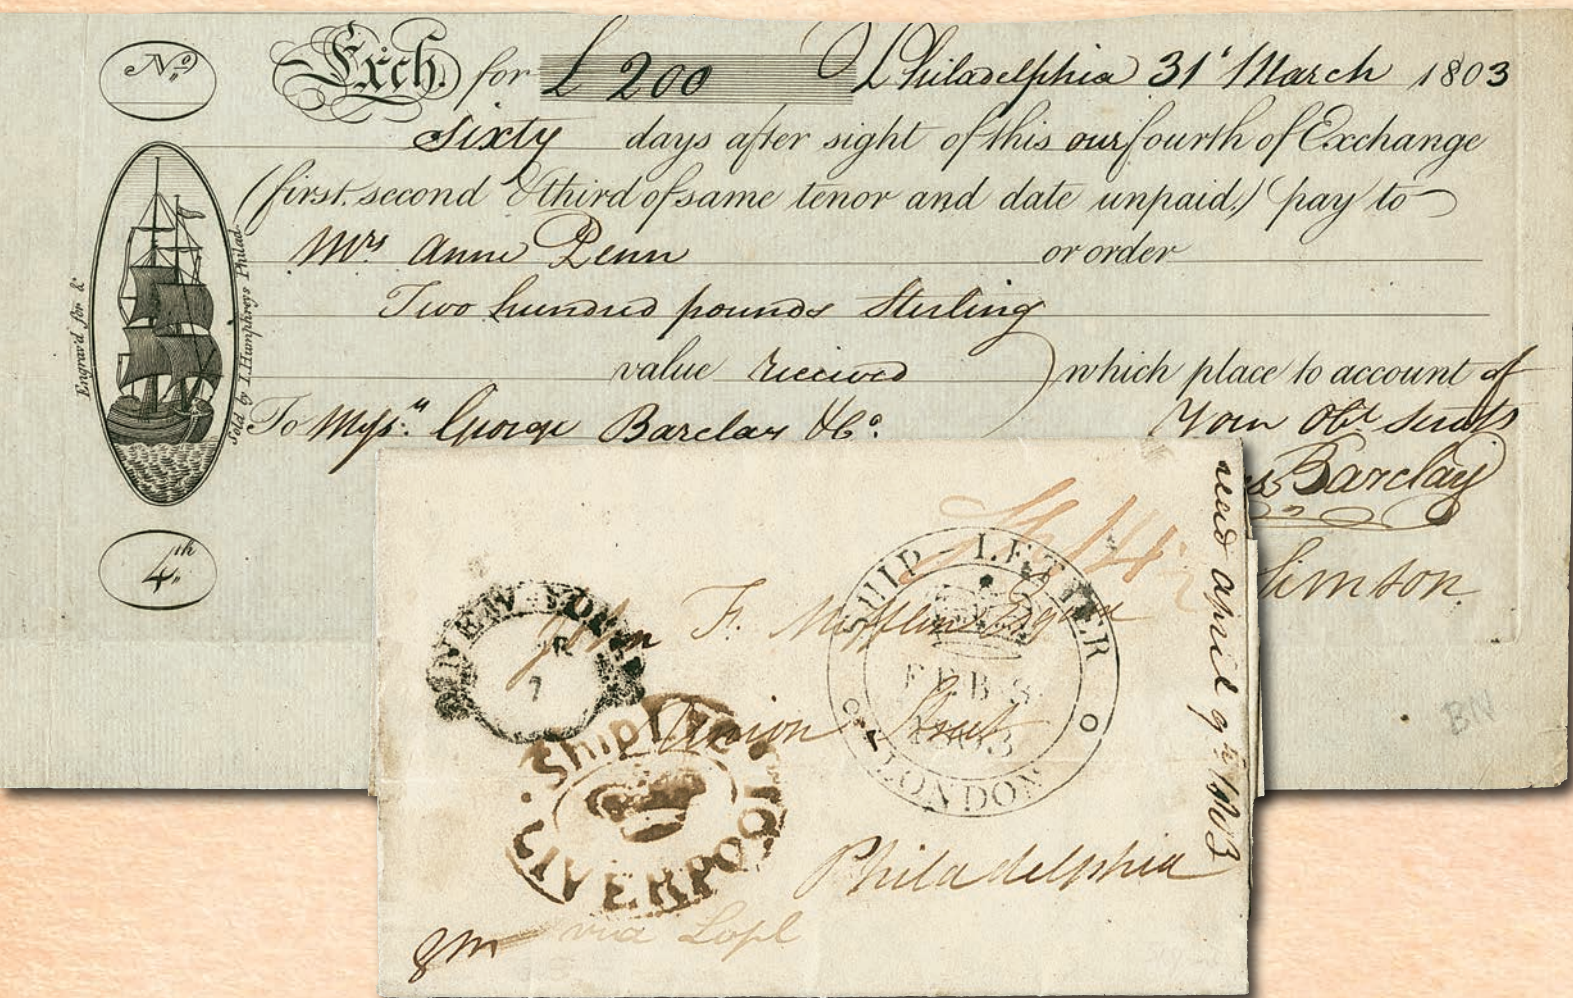 No.
Exch. for £ 200 Philadelphia 31st March 1803
Sixty days after sight of this our fourth of Exchange
(first, second & third of same tenor and date unpaid,) pay to
Mrs Anne Penn or order
Two hundred pounds Sterling
value received which place to account of
To Messrs. George Barclay & Co. Your Obt Servts
Barclay
Simson
Engrav'd for &
Sold by J. Humphreys Philad.
4th
BN
NEW YORK
7
SHIP-LETTER
FEB 8
1803
LONDON
John F. Mifflin Esquire
Union Street
Philadelphia
Ship Lre
LIVERPOOL
via Lopl
recd April 9th 1803